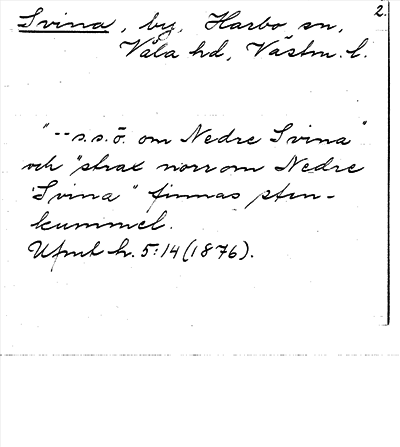 2.
Svina, by, Harbo sn,
Våla hd, Västm. l.
"-- s.s.ö. om Nedre Svina"
och "strax norr om Nedre
Svina" finnas sten-
kummel.
Ufmt h. 5:14 (1876).